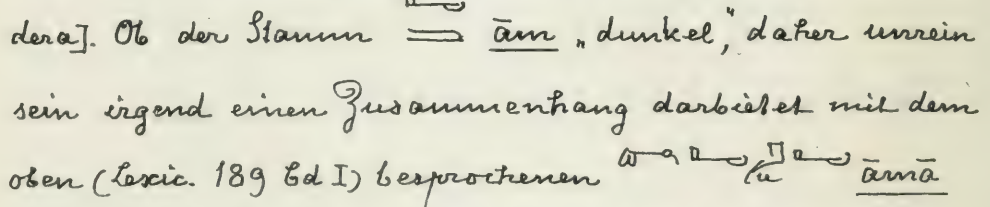 dera]. Ob der Stamm ām „dunkel", daher unrein
sein irgend einen Zusammenhang darbietet mit dem
oben (Lexic. 189 Bd I) besprochenen āmā